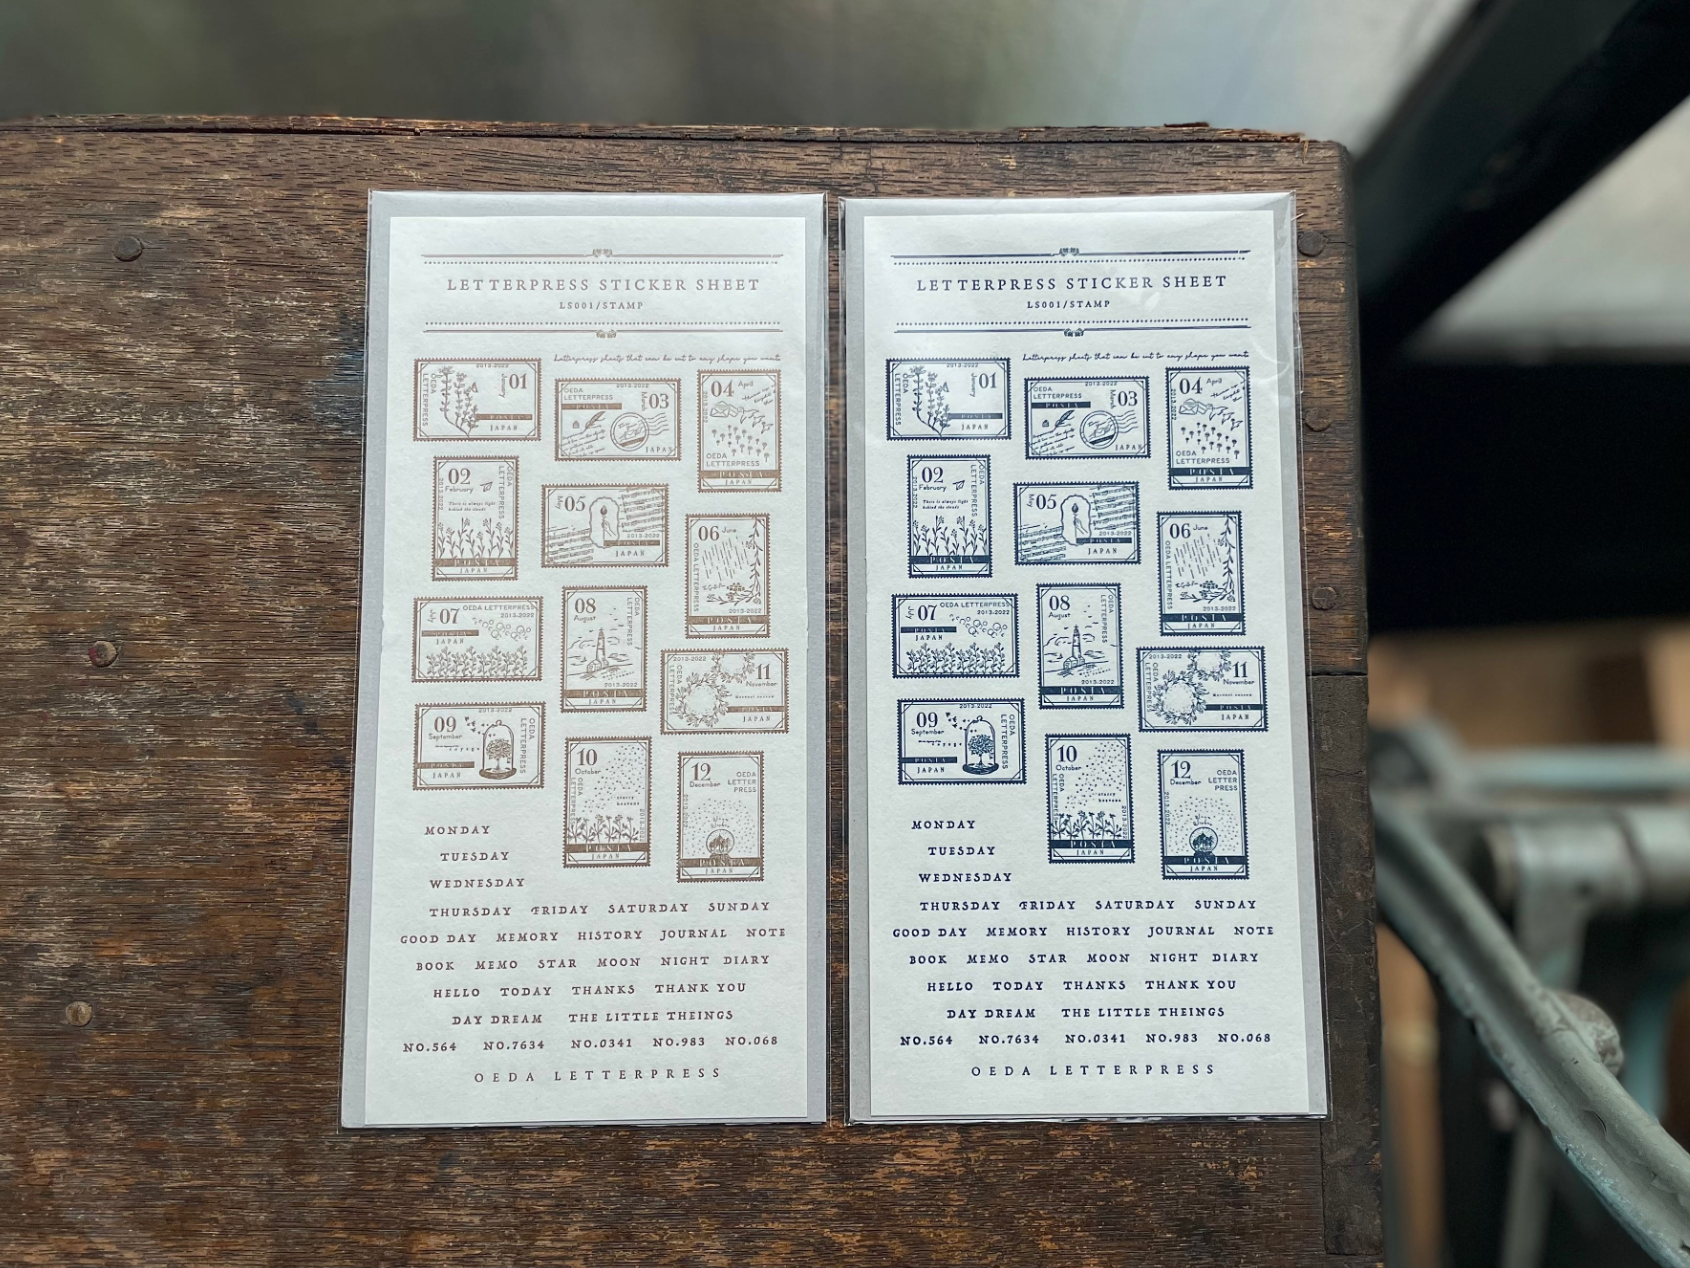 LETTERPRESS STICKER SHEET
LS001/STAMP
Letterpress sheets that can be cut to any shape you want
2013-2022
01
January
OEDA LETTERPRESS
POSTA
JAPAN
2013-2022
OEDA LETTERPRESS
03
March
POSTA
JAPAN
04
April
2013-2022
OEDA LETTERPRESS
POSTA
02
February
OEDA LETTERPRESS
2013-2022
There is always light
behind the clouds
POSTA
JAPAN
05
May
2013-2022
POSTA
JAPAN
06
June
OEDA LETTERPRESS
2013-2022
POSTA
JAPAN
07
July
OEDA LETTERPRESS
2013-2022
POSTA
JAPAN
08
August
OEDA LETTERPRESS
2013-2022
POSTA
JAPAN
2013-2022
11
November
OEDA LETTERPRESS
Harvest season
POSTA
JAPAN
2013-2022
09
September
OEDA LETTERPRESS
POSTA
JAPAN
10
October
OEDA LETTERPRESS
starry
heavens
2013-2022
POSTA
JAPAN
12
December
OEDA
LETTER
PRESS
2013-2022
POSTA
JAPAN
MONDAY
TUESDAY
WEDNESDAY
THURSDAY FRIDAY SATURDAY SUNDAY
GOOD DAY MEMORY HISTORY JOURNAL NOTE
BOOK MEMO STAR MOON NIGHT DIARY
HELLO TODAY THANKS THANK YOU
DAY DREAM THE LITTLE THEINGS
NO.564 NO.7634 NO.0341 NO.983 NO.068
OEDA LETTERPRESS
LETTERPRESS STICKER SHEET
LS001/STAMP
Letterpress sheets that can be cut to any shape you want
2013-2022
01
January
OEDA LETTERPRESS
POSTA
JAPAN
2013-2022
OEDA LETTERPRESS
03
March
POSTA
JAPAN
04
April
2013-2022
OEDA LETTERPRESS
POSTA
02
February
OEDA LETTERPRESS
2013-2022
There is always light
behind the clouds
POSTA
JAPAN
05
May
2013-2022
POSTA
JAPAN
06
June
OEDA LETTERPRESS
2013-2022
POSTA
JAPAN
07
July
OEDA LETTERPRESS
2013-2022
POSTA
JAPAN
08
August
OEDA LETTERPRESS
2013-2022
POSTA
JAPAN
2013-2022
11
November
OEDA LETTERPRESS
Harvest season
POSTA
JAPAN
2013-2022
09
September
OEDA LETTERPRESS
POSTA
JAPAN
10
October
OEDA LETTERPRESS
starry
heavens
2013-2022
POSTA
JAPAN
12
December
OEDA
LETTER
PRESS
2013-2022
POSTA
JAPAN
MONDAY
TUESDAY
WEDNESDAY
THURSDAY FRIDAY SATURDAY SUNDAY
GOOD DAY MEMORY HISTORY JOURNAL NOTE
BOOK MEMO STAR MOON NIGHT DIARY
HELLO TODAY THANKS THANK YOU
DAY DREAM THE LITTLE THEINGS
NO.564 NO.7634 NO.0341 NO.983 NO.068
OEDA LETTERPRESS